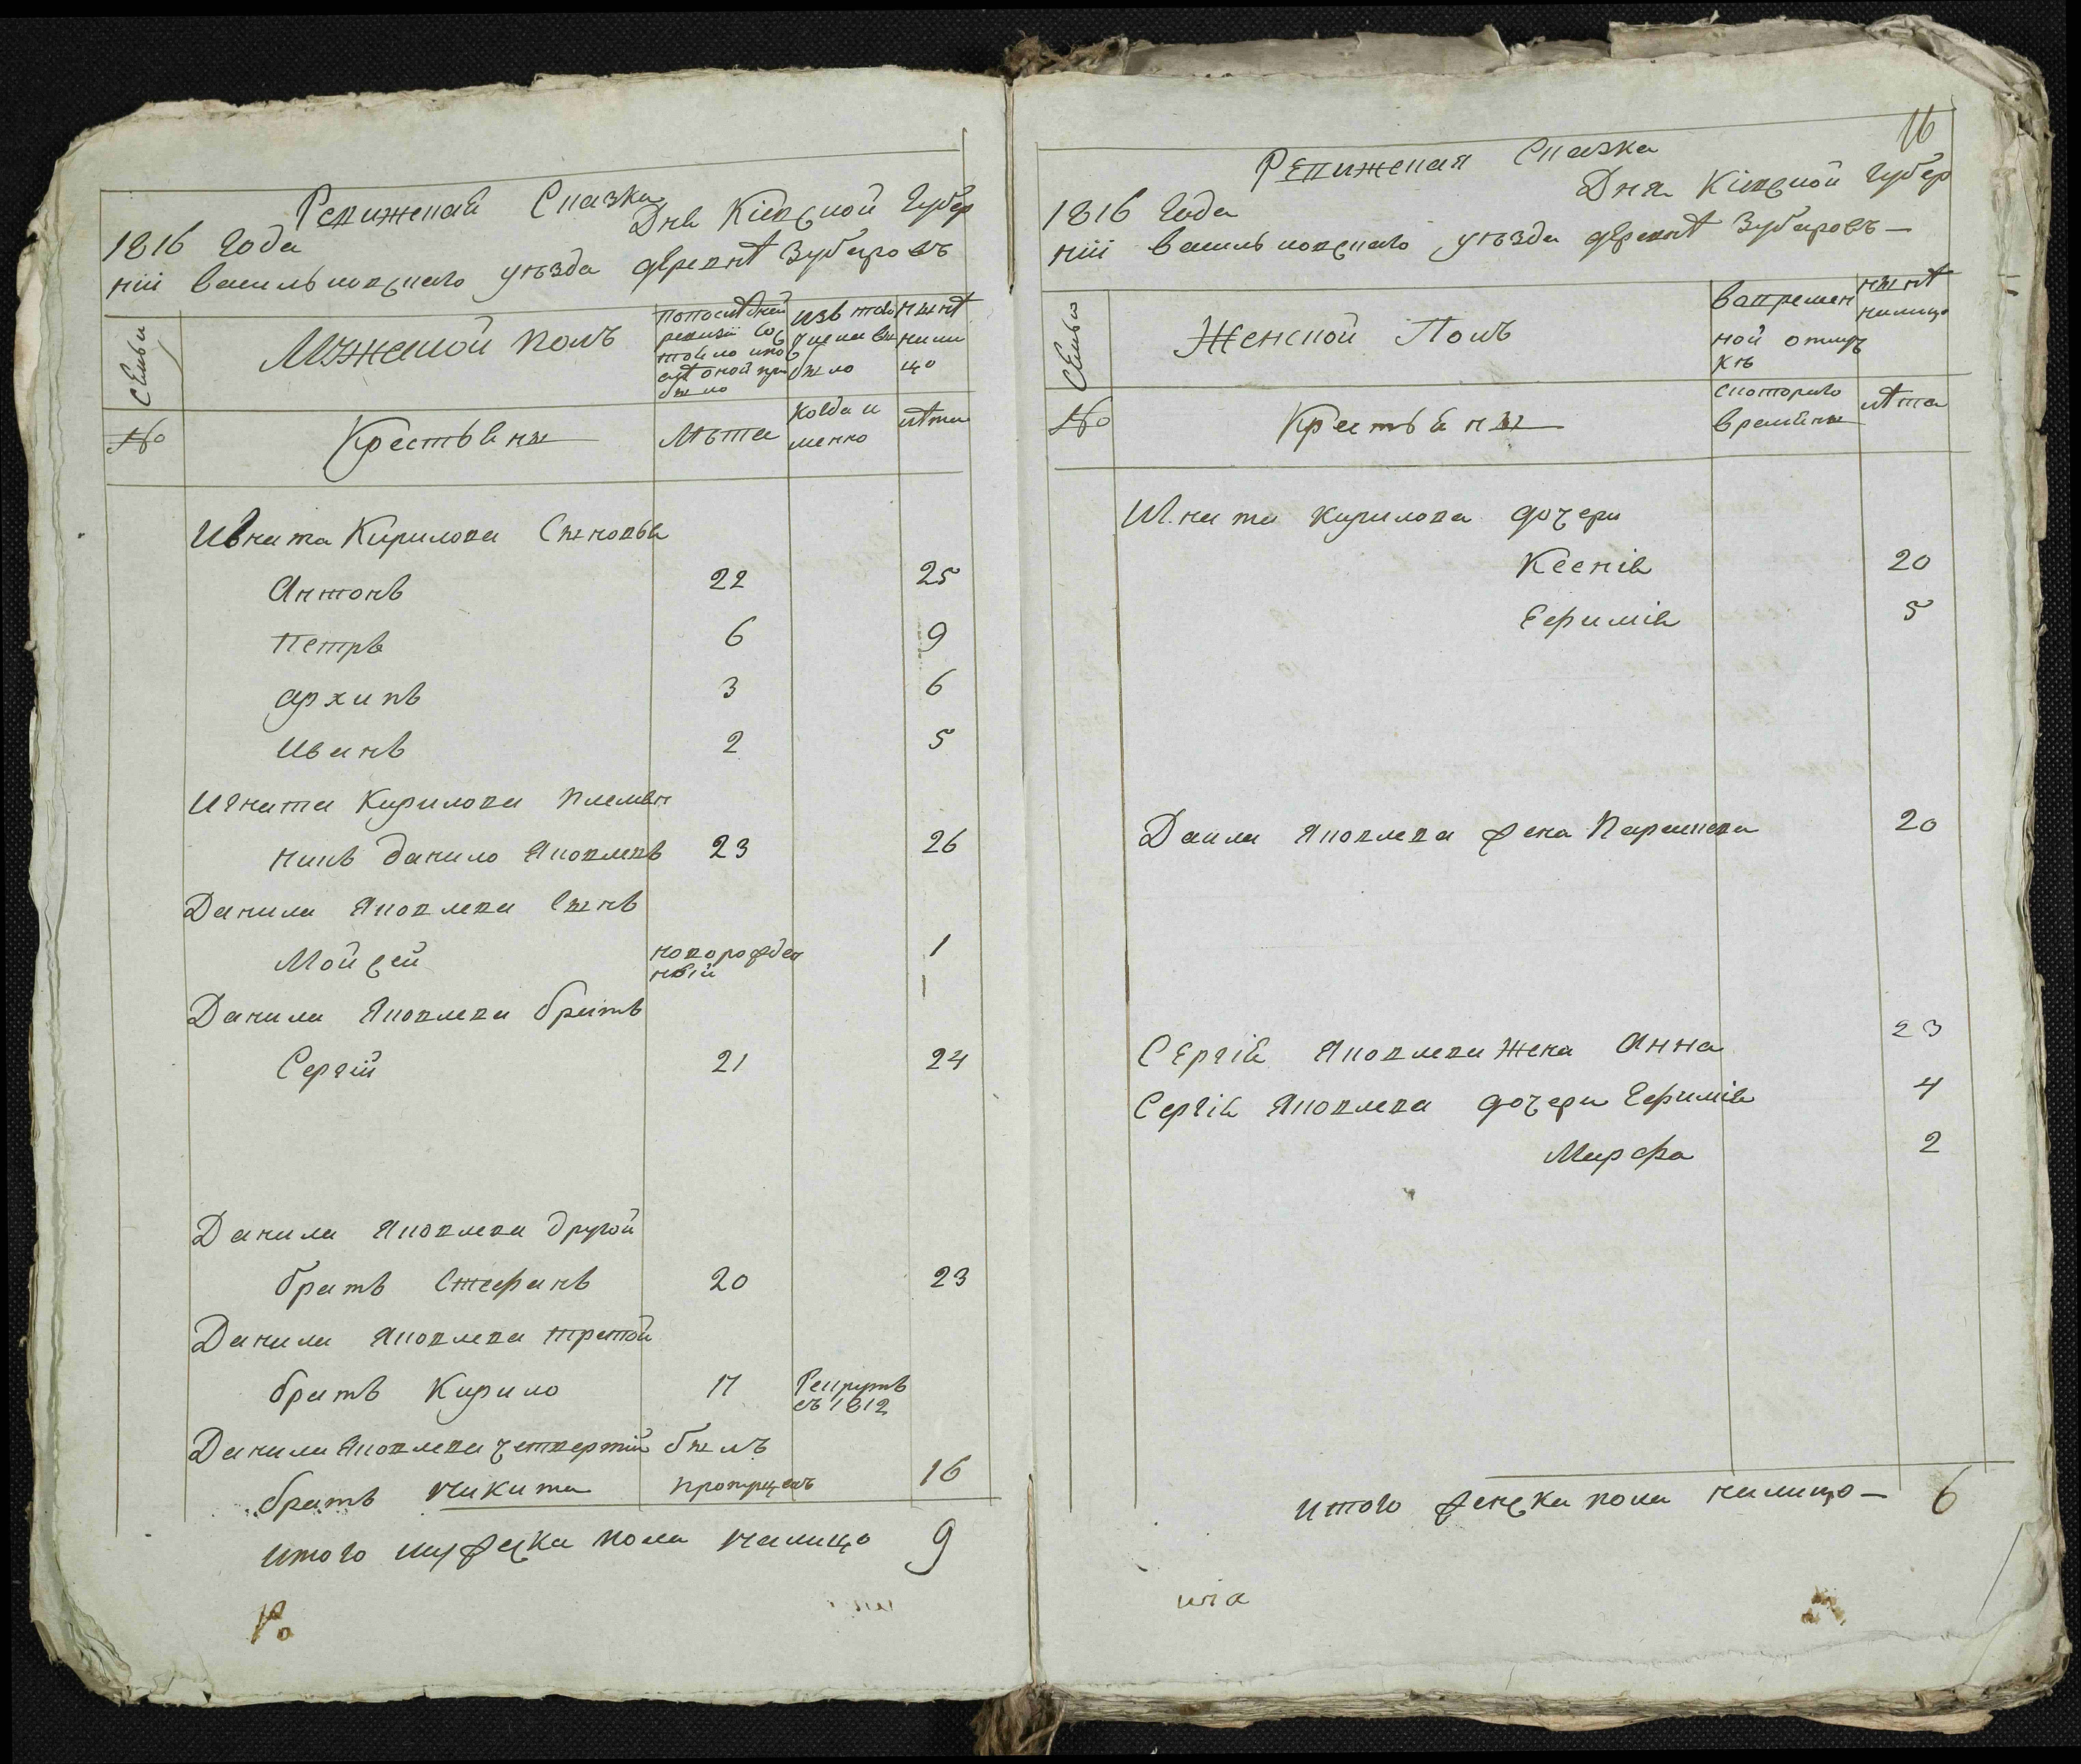 Ревижская Сказка
1816 Года Дня Кіевской Губер
ніи васильковскаго уѣзда деревнѣ Зубаровъ
Семьи
Мужеской полъ
попослѣдней ревизіи состояло и после оной прибыло
изъ того числа выбыло
нынѣ налицо
№
Крестьяне
Лѣта
Когда именно
лѣта
Игната Кирилова Сыновья
Антонъ 22 25
Петръ 6 9
архипъ 3 6
Иванъ 2 5
Игната Кирилова племян
никъ данило Яковлевъ 23 26
Данила Яковлева сынъ
Мойсей новорожден
ный 1
Данила Яковлева братъ
Сергій 21 24
Данила Яковлева другой
братъ Стефанъ 20 23
Данила Яковлева третой
братъ Кирило 17 Рекрутъ
съ 1812
Данила Яковлева четвертій былъ
братъ Никита пропущенъ 16
итого мужеска пола налицо 9
16
Ревижская Сказка
1816 Года Дня Кіевской Губер
ніи васильковскаго уѣзда деревнѣ Зубаровъ —
Семьи
Женской Полъ
вовремен
ной отлуч
кѣ
нынѣ
налицо
№
Крестьяне
скотораго
времяни
лѣта
Игната Кирилова дочери
Ксенія 20
Ефимія 5
Данла Яковлева жена Параскева 20
Сергія Яковлева жена Анна 23
Сергія Яковлева дочери Ефимія 4
Марфа 2
итого женска пола налицо — 6